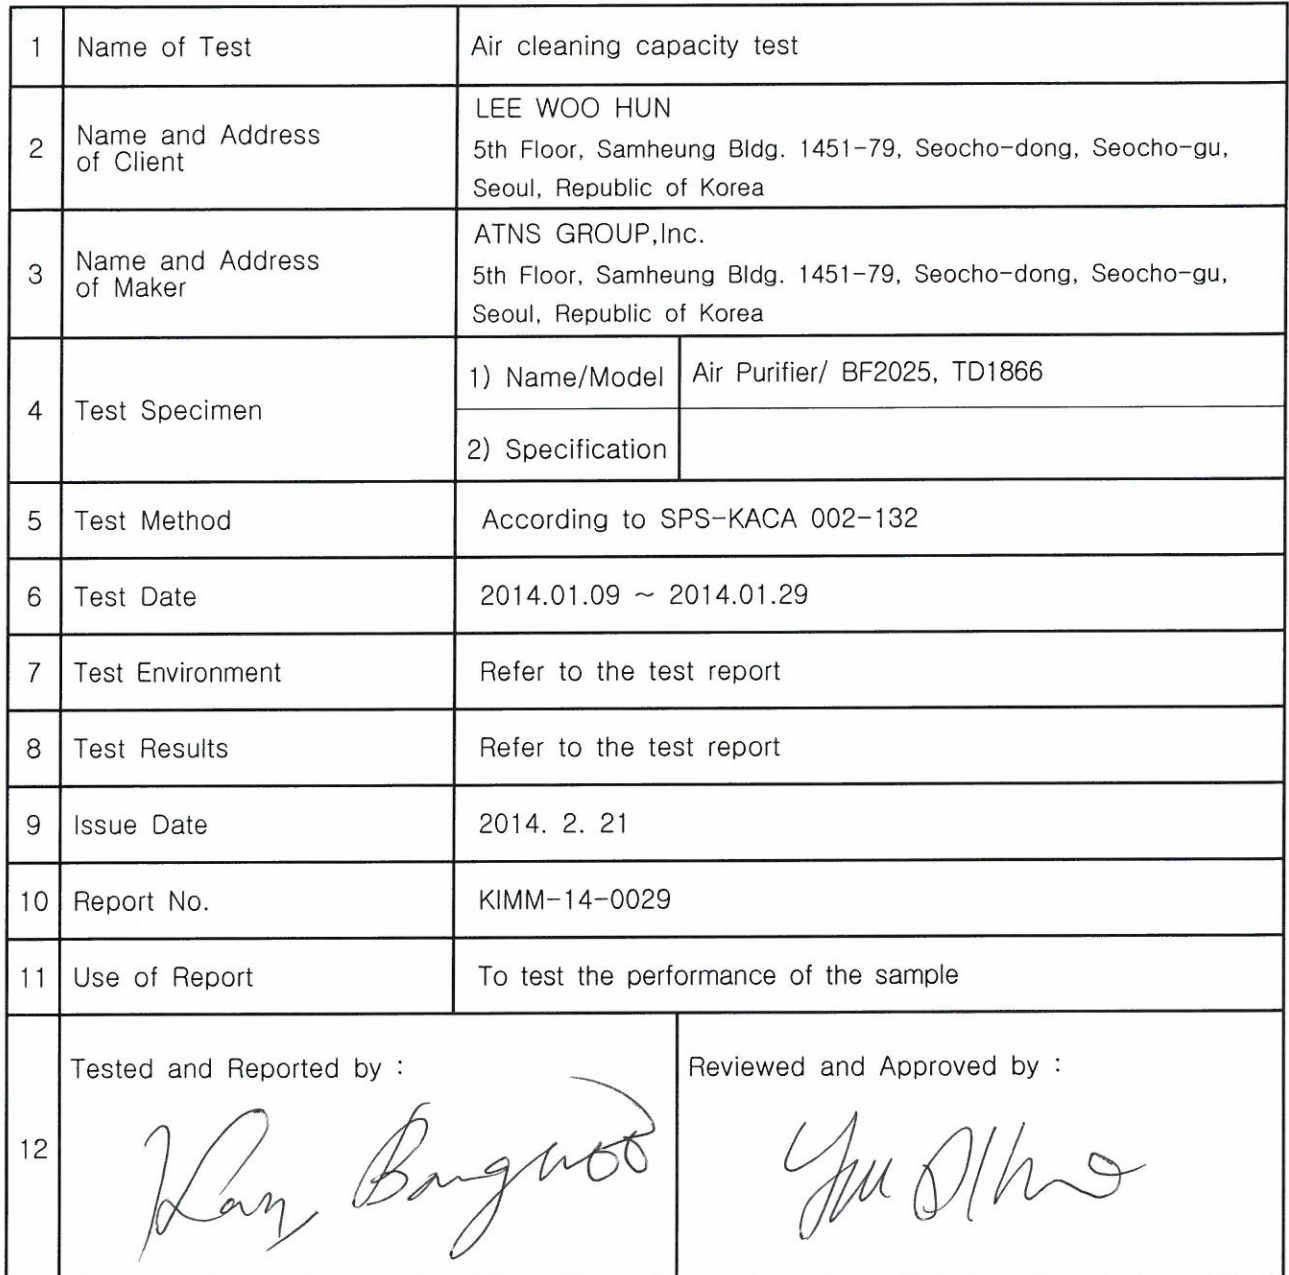 1 Name of Test Air cleaning capacity test
2 Name and Address of Client
LEE WOO HUN
5th Floor, Samheung Bldg. 1451-79, Seocho-dong, Seocho-gu,
Seoul, Republic of Korea
3 Name and Address of Maker
ATNS GROUP,Inc.
5th Floor, Samheung Bldg. 1451-79, Seocho-dong, Seocho-gu,
Seoul, Republic of Korea
4 Test Specimen
1) Name/Model Air Purifier/ BF2025, TD1866
2) Specification
5 Test Method According to SPS-KACA 002-132
6 Test Date 2014.01.09 ~ 2014.01.29
7 Test Environment Refer to the test report
8 Test Results Refer to the test report
9 Issue Date 2014. 2. 21
10 Report No. KIMM-14-0029
11 Use of Report To test the performance of the sample
12
Tested and Reported by :
Reviewed and Approved by :